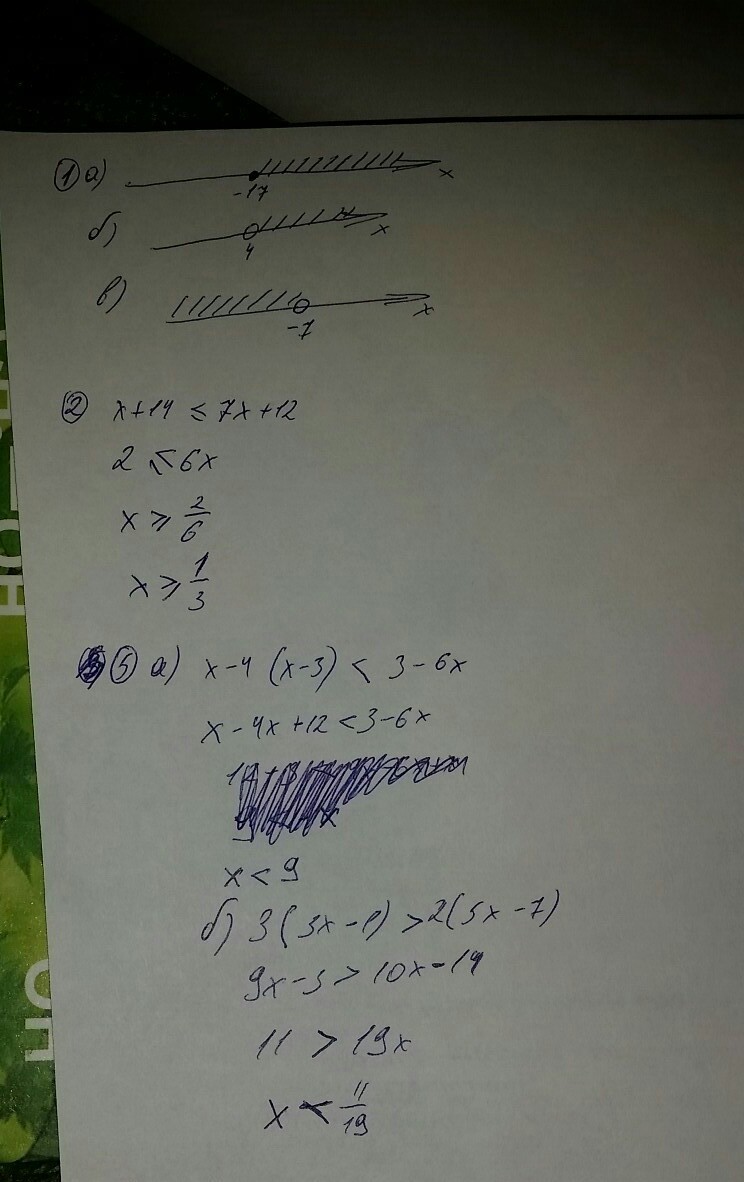 ① а)
-17
x
б)
4
x
в)
-7
x
② x+14 ⩽ 7x+12
2 ⩽ 6x
x ⩾ 2/6
x ⩾ 1/3
⑤ а) x-4 (x-3) < 3-6x
x-4x+12<3-6x
x < 9
б) 3(3x-1) >2(5x-7)
9x-3>10x-14
11 > 19x
x < 11/19